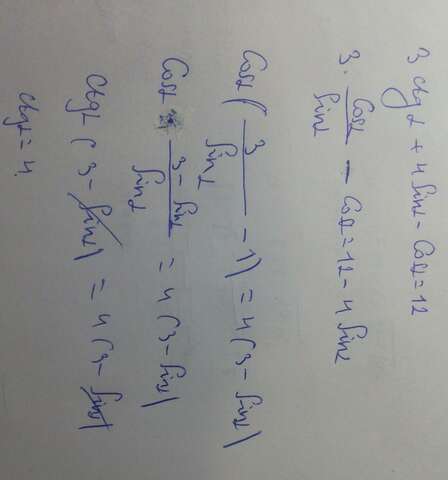 3 ctg α + 4 sin α - cos α = 12
3 · cos α / sin α - cos α = 12 - 4 sin α
cos α ( 3 / sin α - 1 ) = 4 ( 3 - sin α )
cos α · 3 - sin α / sin α = 4 ( 3 - sin α )
ctg α ( 3 - sin α ) = 4 ( 3 - sin α )
ctg α = 4.